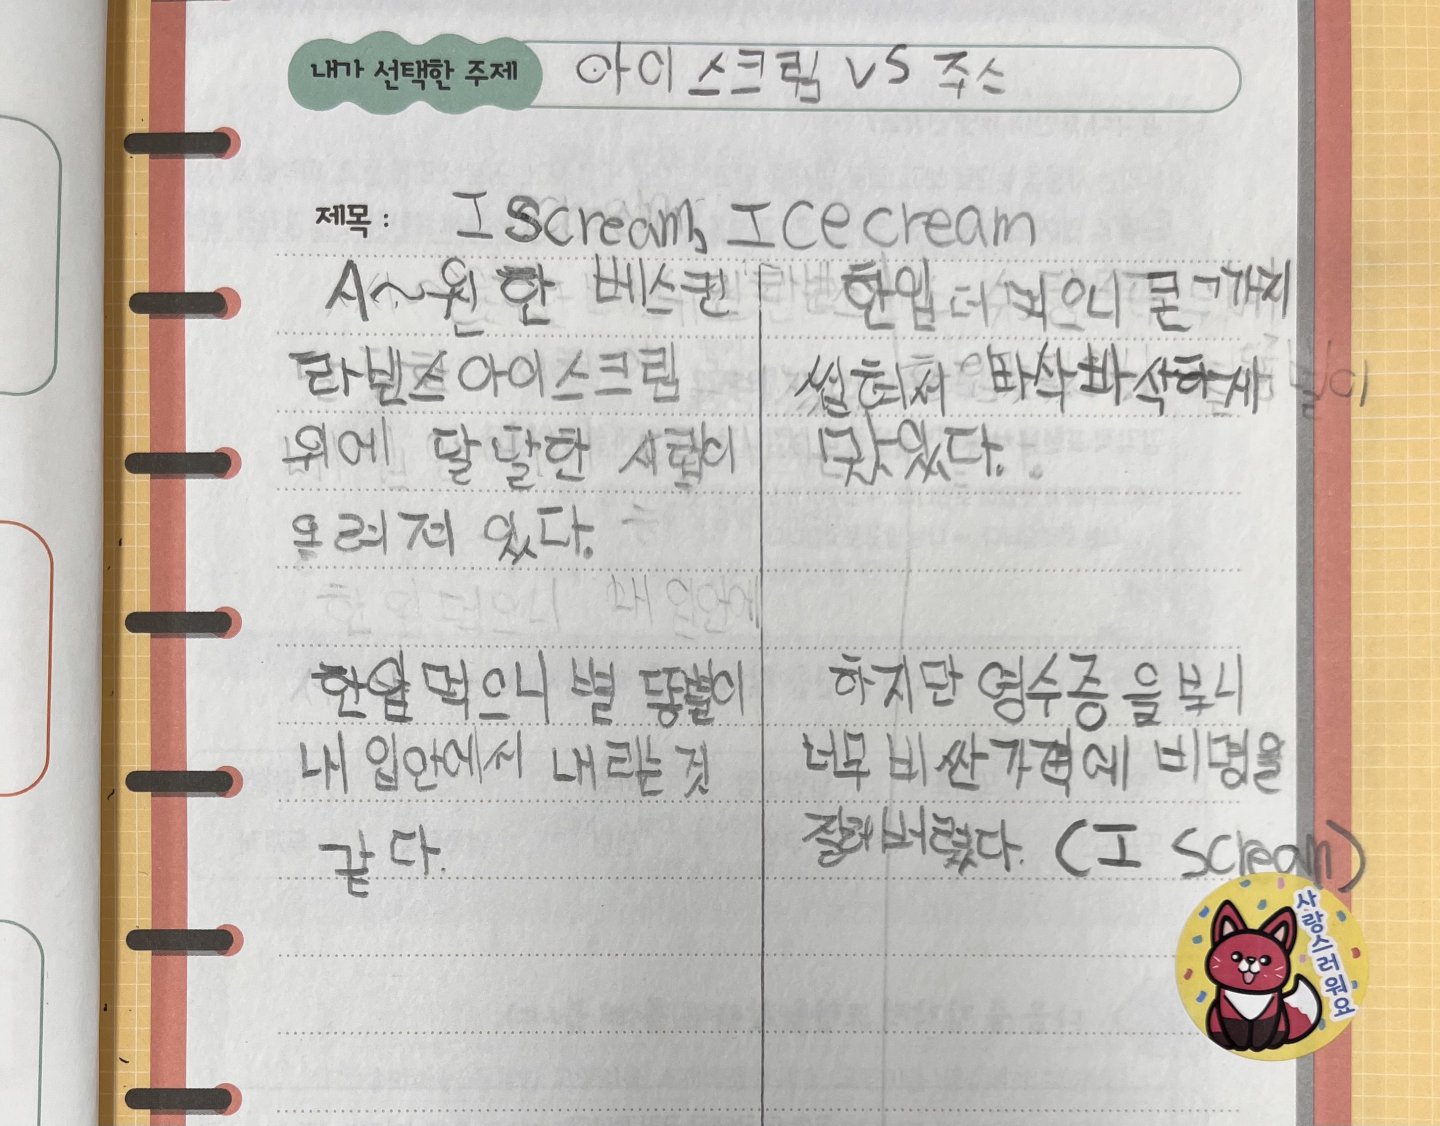 내가 선택한 주제 아이스크림 vs 주스
제목: I Scream, Ice cream
A~원한 베스킨
라빈스 아이스크림
위에 달달한 시럽이
올려져 있다.
한입 먹으니 별똥별이
내 입안에서 내리는 것
같다.
한입 더 먹으니
바삭바삭하게
맛있다.
하지만 영수증을 보니
너무 비싼 가격에 비명을
질레버렸다. (I Scream)
사랑스러워요